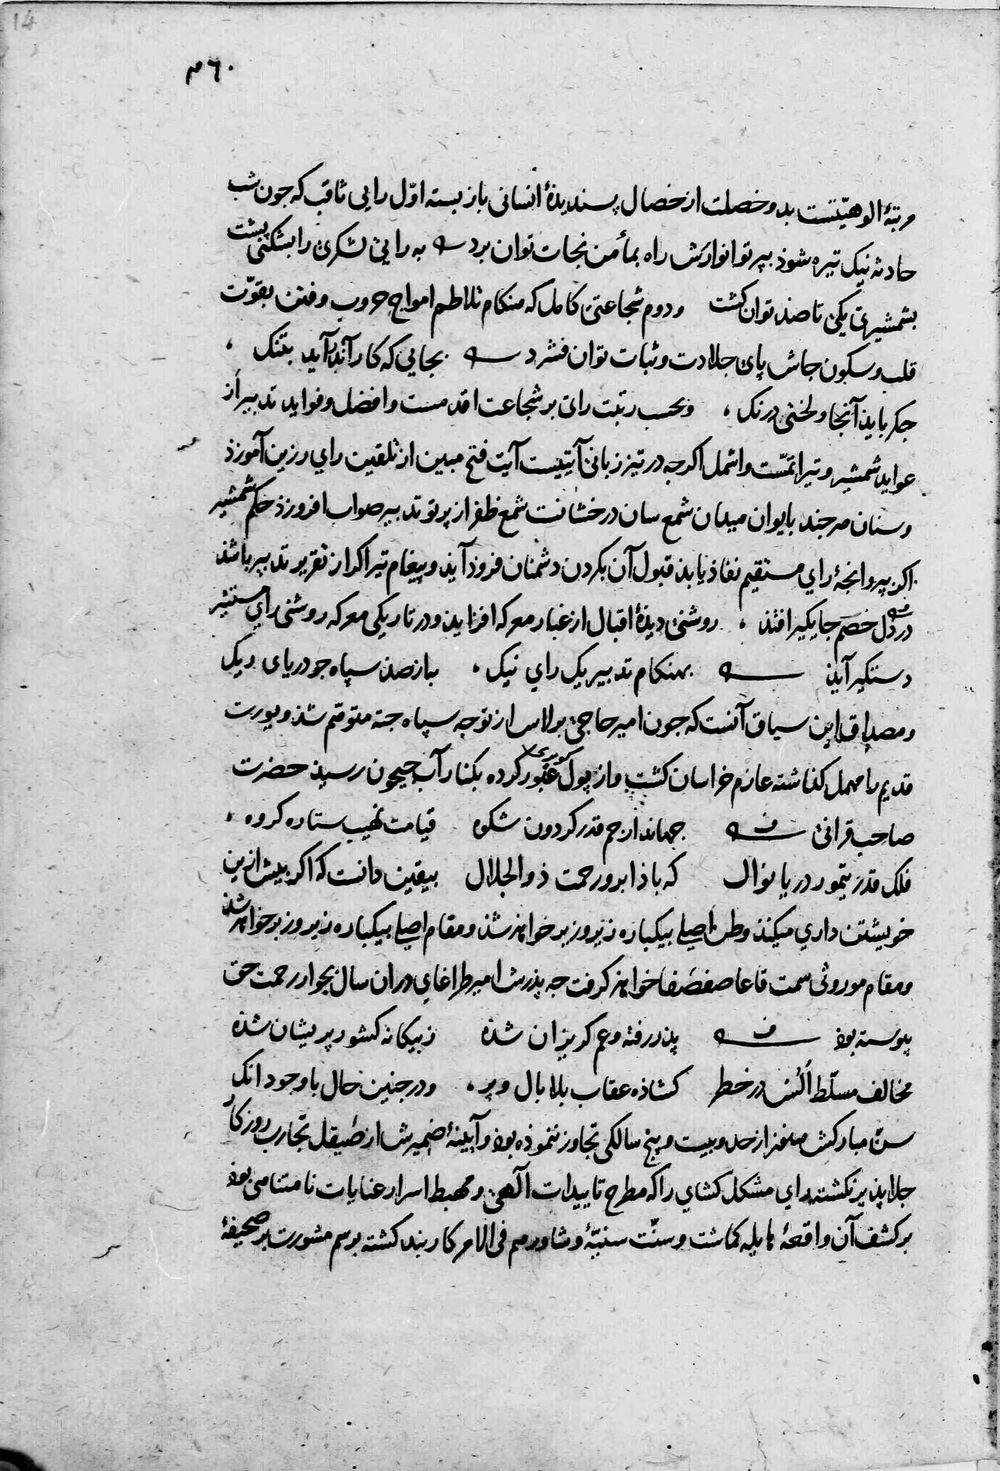 14
۴۶۰
مرتبهٔ الوهیتست بدو خصلت از خصال پسندیدهٔ انسانی باز بسته اول رایی ثاقب که جون شب
حادثه نیک تیره شوذ بپرتو انوارش راه بمأمن نجات توان برد به رایی لشکری را بشکنی پشت
بشمشیری یکی تا صد توان کشت و دوم شجاعتی کامل که هنکام تلاطم امواج حروب و فتن بقوّت
قلب و سکون جاش پای جلادت و ثبات توان فشرد بجایی که کار آند آید بتنک
جکر باید آنجا و لختی درنک و بحسب رتبت رای بر شجاعت اقدمست و افضل و فواید تدبیر از
عواید شمشیر و تیر اتمّست و اشمل اکرجه در تیز زبانی آیتیست آیت فتح مبین از تلقین رای رزین آموزذ
و سنان هر جند با یوان میدان شمع سان درخشانست شمع ظفر از پرتو تدبیر صواب افروزذ حکم شمشیر
اکر بپروانجهٔ رای مستقیم نفاذ یابذ قبول آن بکردن دشمنان فروذ آیذ و پیغام تیر اکر از تقریر تدبیر باشذ
در دل خصم جایکیر افتذ روشنی دیدهٔ اقبال از غبار معرکه افزاید و در تاریکی معرکه روشنی رای مستنیر
دستکیر آیذ بهنکام تدبیر یک رای نیک به از صد سپاه جو دریای ریک
و مصداق این سیاق آنست که جون امیر حاجی برلاس از توجه سپاه جته متوهم شذ و یورت
قدیم را مهمل کذاشته عازم خراسان کشت و از پول عبور کرده بکنار آب جیحون رسیذ حضرت
صاحب قرانی جهاندار جم قدر کردون شکوه قیامت نهیب ستاره کروه
فلک قدر تیمور دریا نوال که باذا برو رحمت ذو الجلال بیقین دانست که اکر بیش ازین
خویشتن داری میکنذ وطن اصلی بیکباره زیر و زبر خواهذ شذ و مقام اصلی بیکباره زیر و زبر خواهذ شذ
و مقام موروثی سمت قاعا صفصفا خواهذ کرفت جه پذرش امیر طراغای دران سال بجوار رحمت حق
پیوسته بوذ پذر رفته و عم کریزان شذه ز بیکانه کشور پریشان شذه
مخالف مسلّط الُس در خطر کشاذه عقاب بلا بال و پر و در جنین حال با وجود انک
سنّ مبارکش هنوز از حد و بیست و پنج سالکی تجاوز ننموذه بوذ و آیینهٔ ضمیرش از صیقل تجارب روزکار
جلا پذیر نکشته رای مشکل کشای را که مطرح تاییدات الٓهی و مهبط اسرار عنایات نامتناهی بوذ
بر کشف آن واقعهٔ هایله کماشت و سنّت سنیّهٔ و شاورهم فی الامر کار بند کشته برسم مشورت بر صحیفهٔ